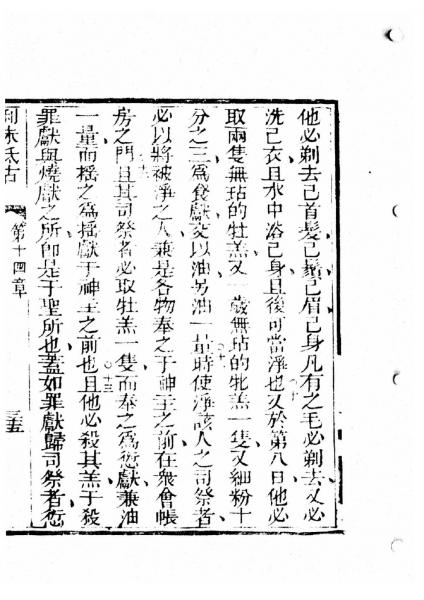 他必剃去己首髮己鬚己眉己身凡有之毛必剃去又必
洗己衣且水中浴己身且後可當淨也又於第八日他必
取兩隻無玷的牡羔又一歲無玷的牝羔一隻又細粉十
分之三為食獻交以油另油一量時使淨該人之司祭者
必以將被淨之人兼是各物奉之于神主之前在眾會帳
房之門且其司祭者必取牡羔一隻而奉之為愆獻兼油
一量而搖之為搖獻于神主之前也且他必殺其羔于殺
罪獻與燒獻之所即是于聖所也蓋如罪獻歸司祭者愆
利未氏古
第十四章
三五